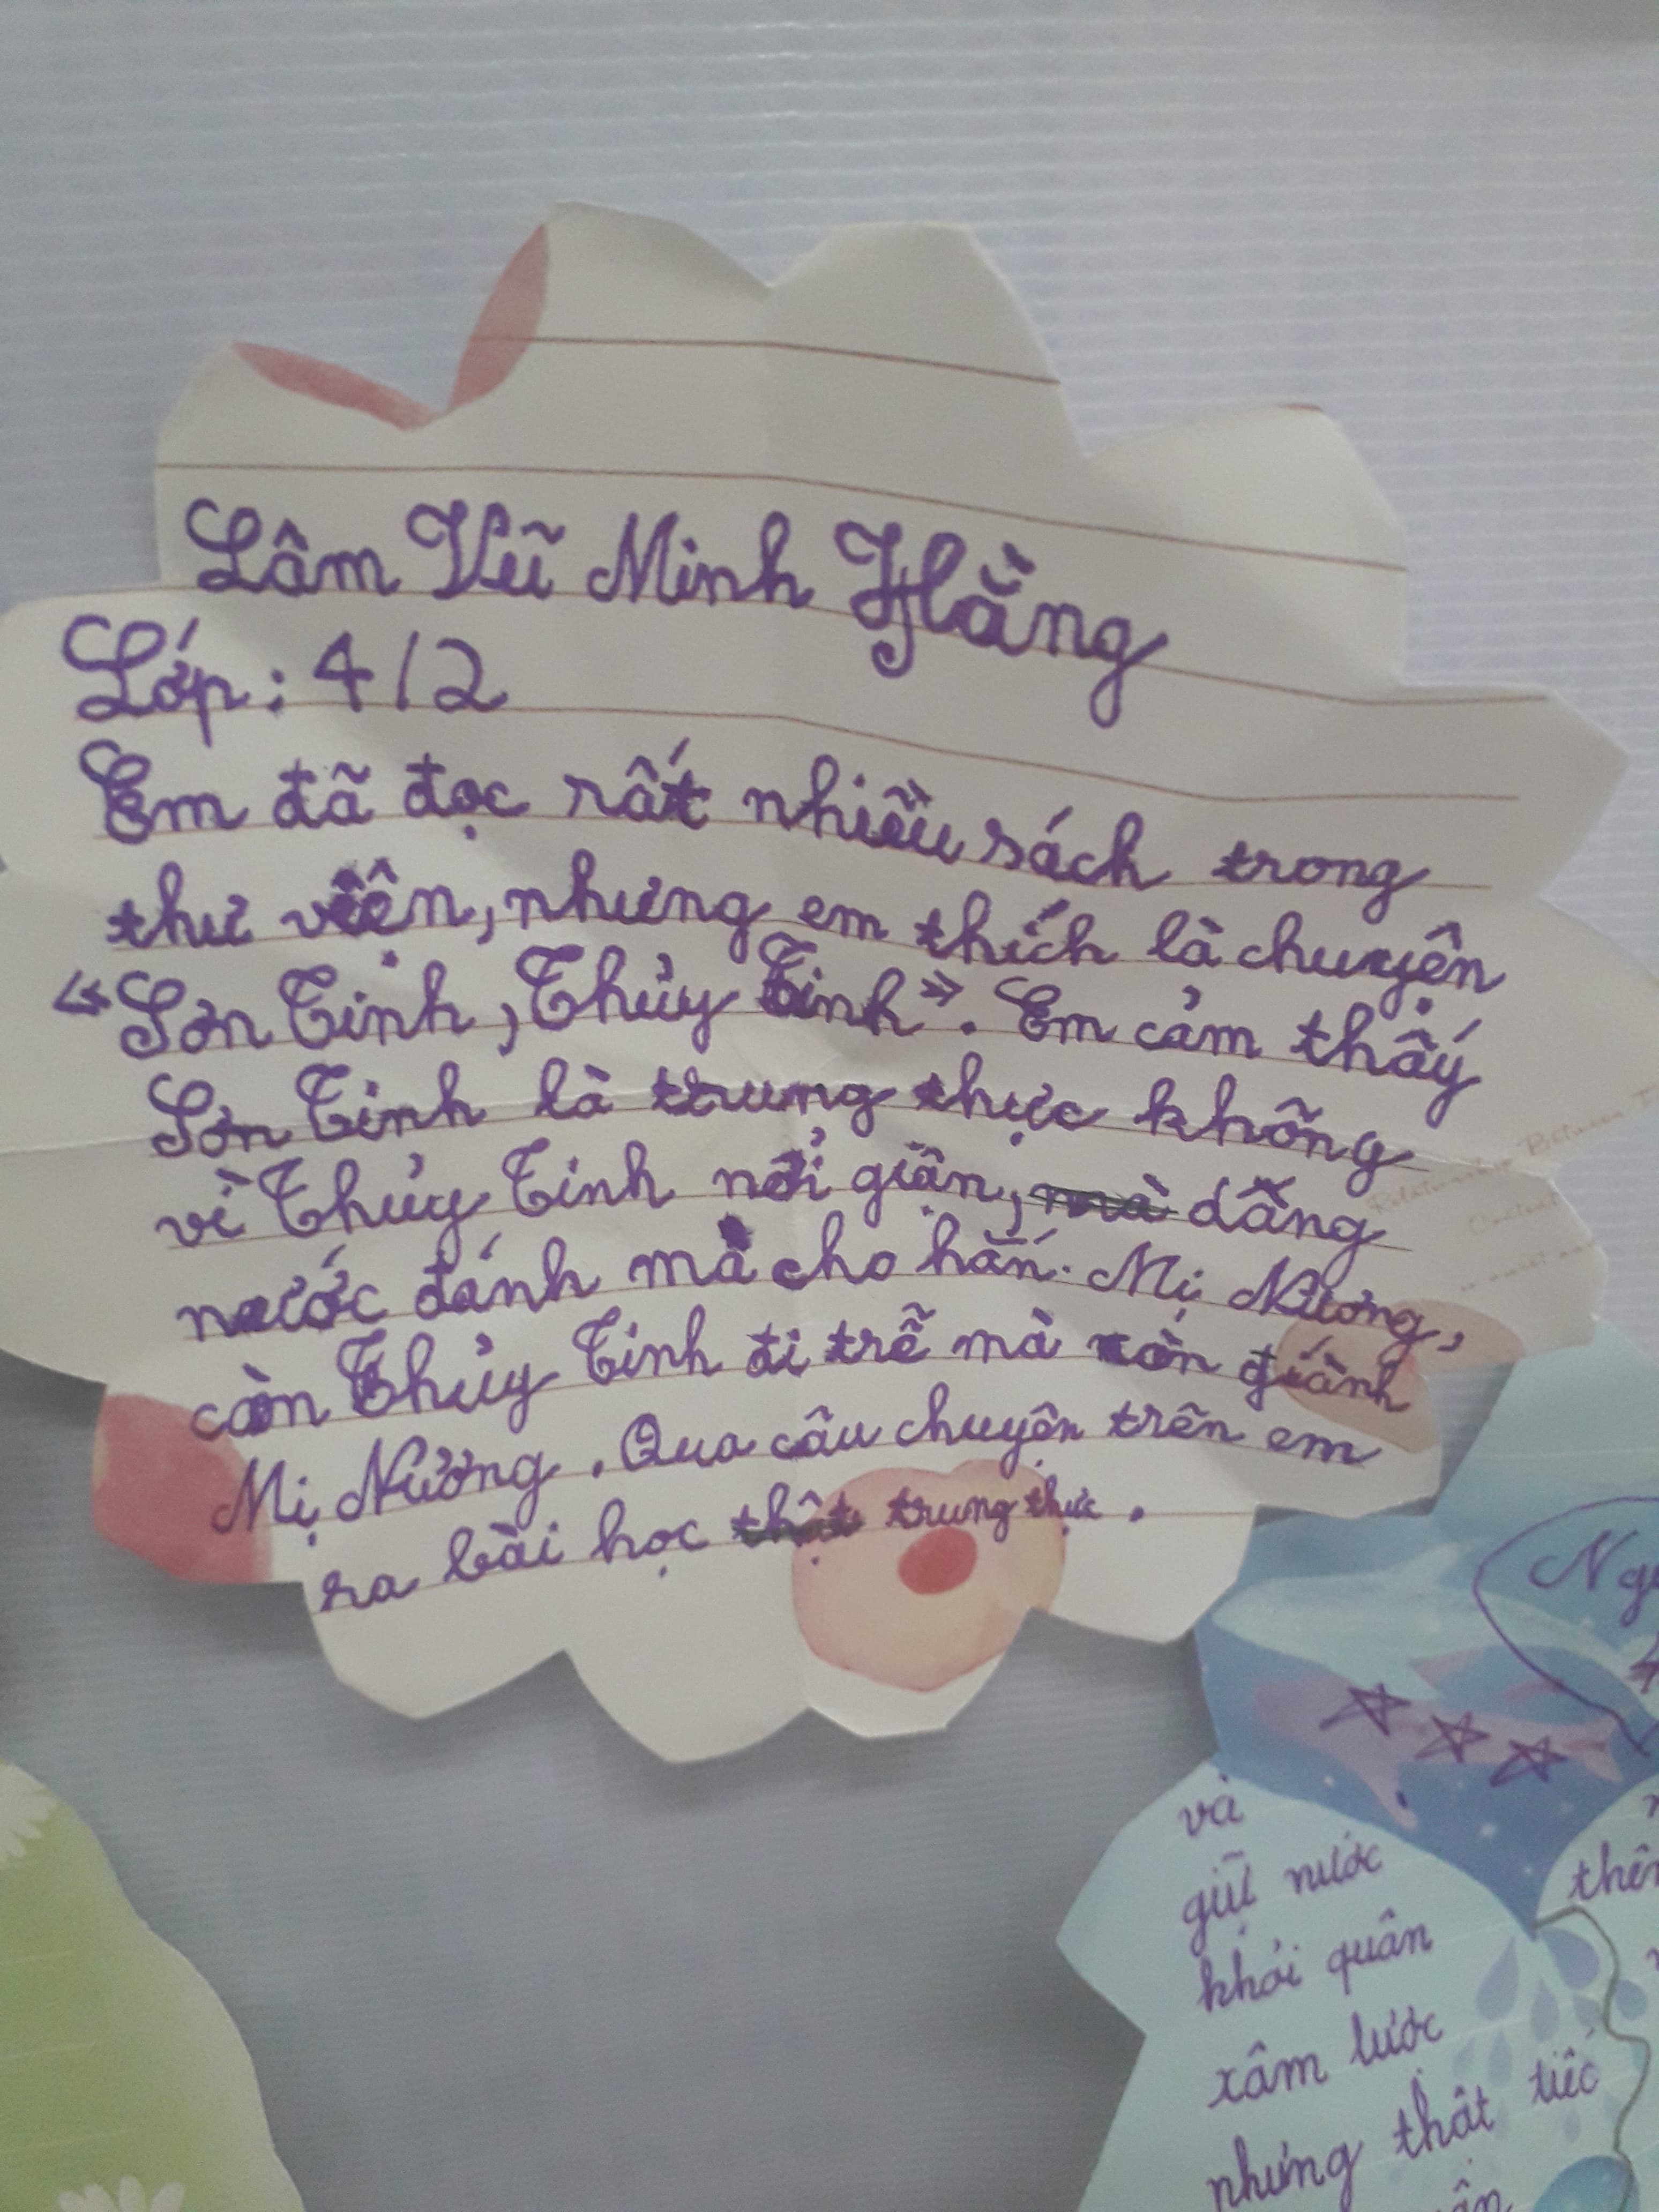 Lâm Vũ Minh Hằng
Lớp: 4/2
Em đã đọc rất nhiều sách trong
thư viện, nhưng em thích là chuyện
"Sơn Tinh, Thủy Tinh". Em cảm thấy
Sơn Tinh là trung thực không
vì Thủy Tinh nổi giận, mà dâng
nước đánh mà cho hắn. Mị Nương,
còn Thủy Tinh đi trễ mà còn giành
Mị Nương. Qua câu chuyện trên em
ra bài học thật trung thực.
và
giữ nước
khỏi quân
xâm lược
nhưng thật tiếc